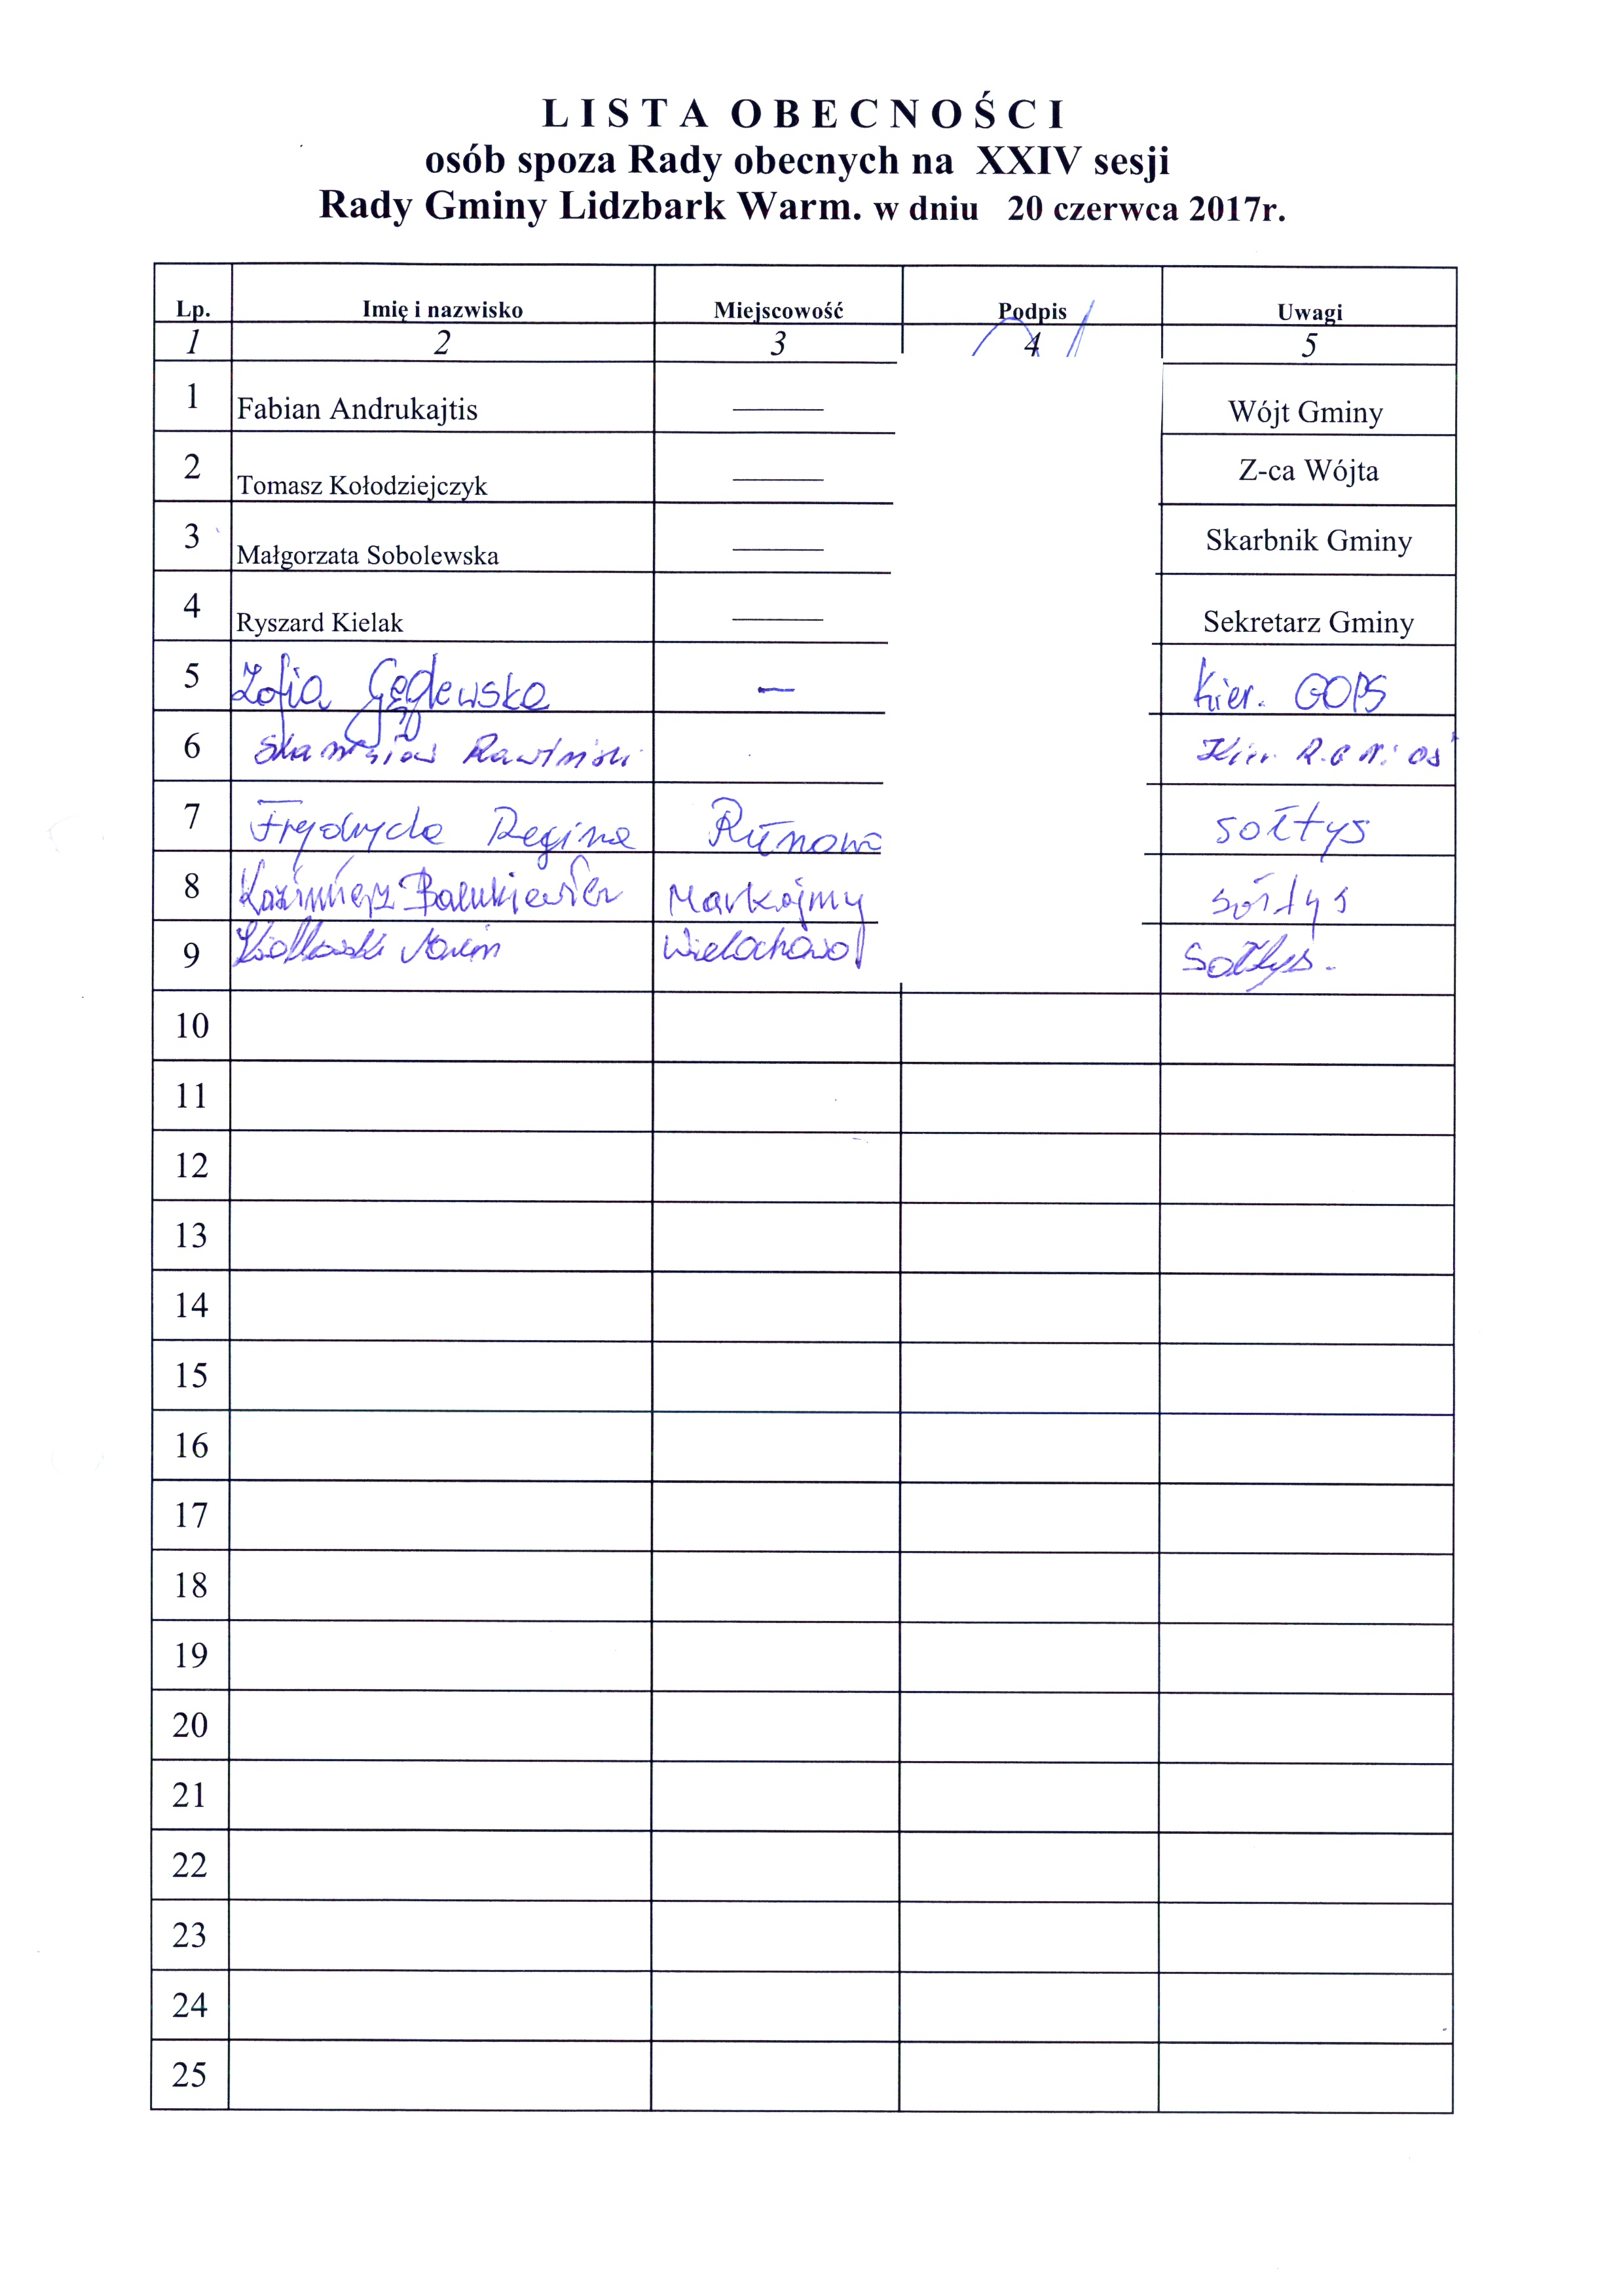 LISTA OBECNOŚCI
osób spoza Rady obecnych na XXIV sesji
Rady Gminy Lidzbark Warm. w dniu 20 czerwca 2017r.
Lp. Imię i nazwisko Miejscowość Podpis Uwagi
1 2 3 4 5
1 Fabian Andrukajtis —— Wójt Gminy
2 Tomasz Kołodziejczyk —— Z-ca Wójta
3 Małgorzata Sobolewska —— Skarbnik Gminy
4 Ryszard Kielak —— Sekretarz Gminy
5 Zofia — Kier. GOPS
6
7 Regina sołtys
8 Kazimierz Markajmy sołtys
9 Wielochowo sołtys.
10
11
12
13
14
15
16
17
18
19
20
21
22
23
24
25